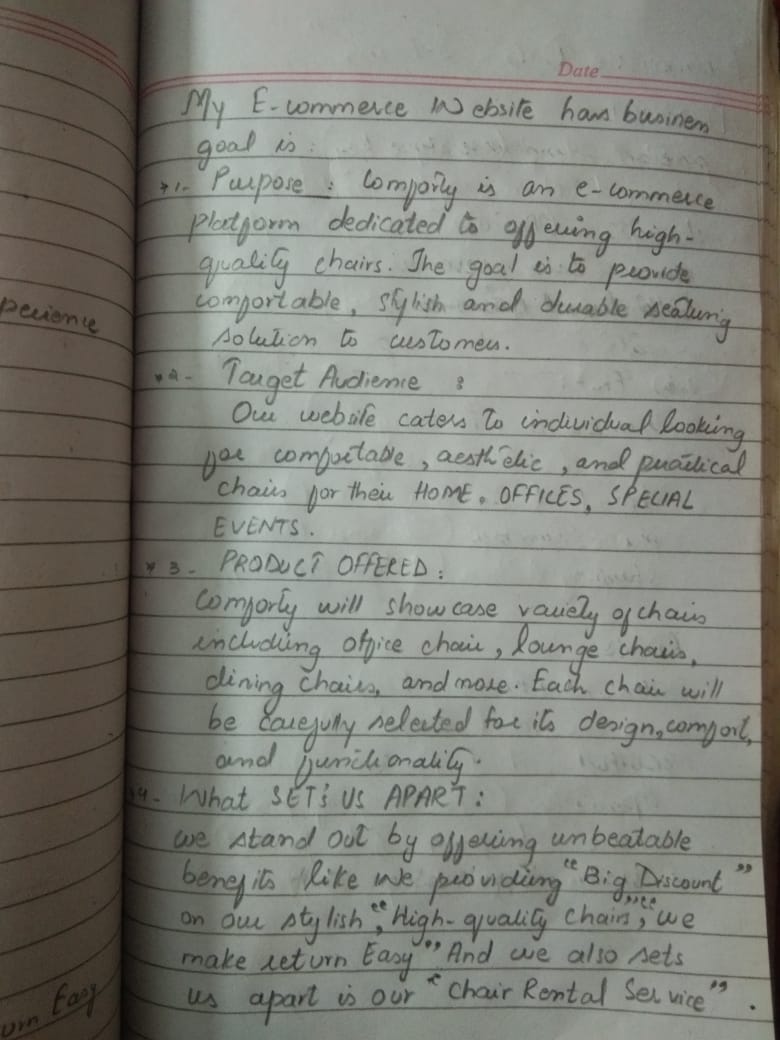 Date
My E-commerce Website has business
goal is :
1. Purpose : Comforty is an e-commerce
platform dedicated to offering high-
quality chairs. The goal is to provide
comfortable, stylish and durable seating
solution to customers.
2- Target Audience :
Our website caters to individual looking
for comfortable, aesthetic, and practical
chairs for their HOME, OFFICES, SPECIAL
EVENTS.
3- PRODUCT OFFERED :
Comforty will showcase variety of chairs
including office chair, lounge chairs,
dining chairs, and more. Each chair will
be carefully selected for its design, comfort,
and functionality.
4- What SET'S US APART :
we stand out by offering unbeatable
benefits like we providing “Big Discount”
on our stylish “, High-quality Chairs,” “we
make return Easy” And we also sets
us apart is our “Chair Rental Service”.
perience
urn Easy